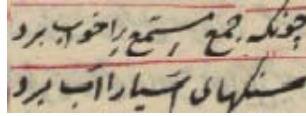 چونکه جمع مستمع را خواب برد
سنگهای آسیا را آب برد